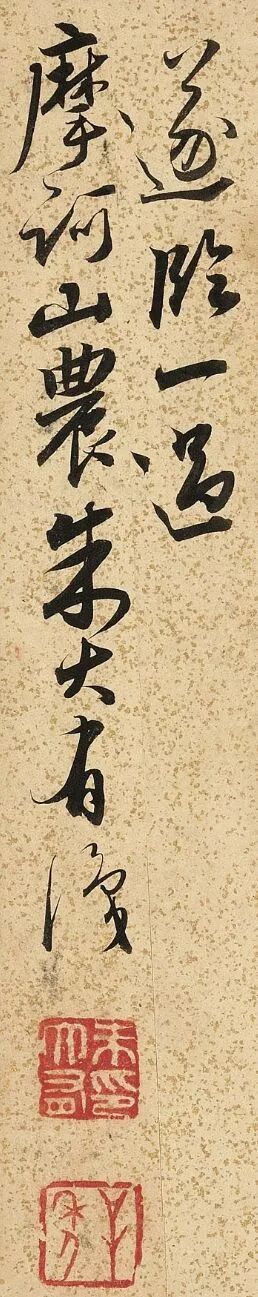 遂臨一過
摩訶山農朱大有識